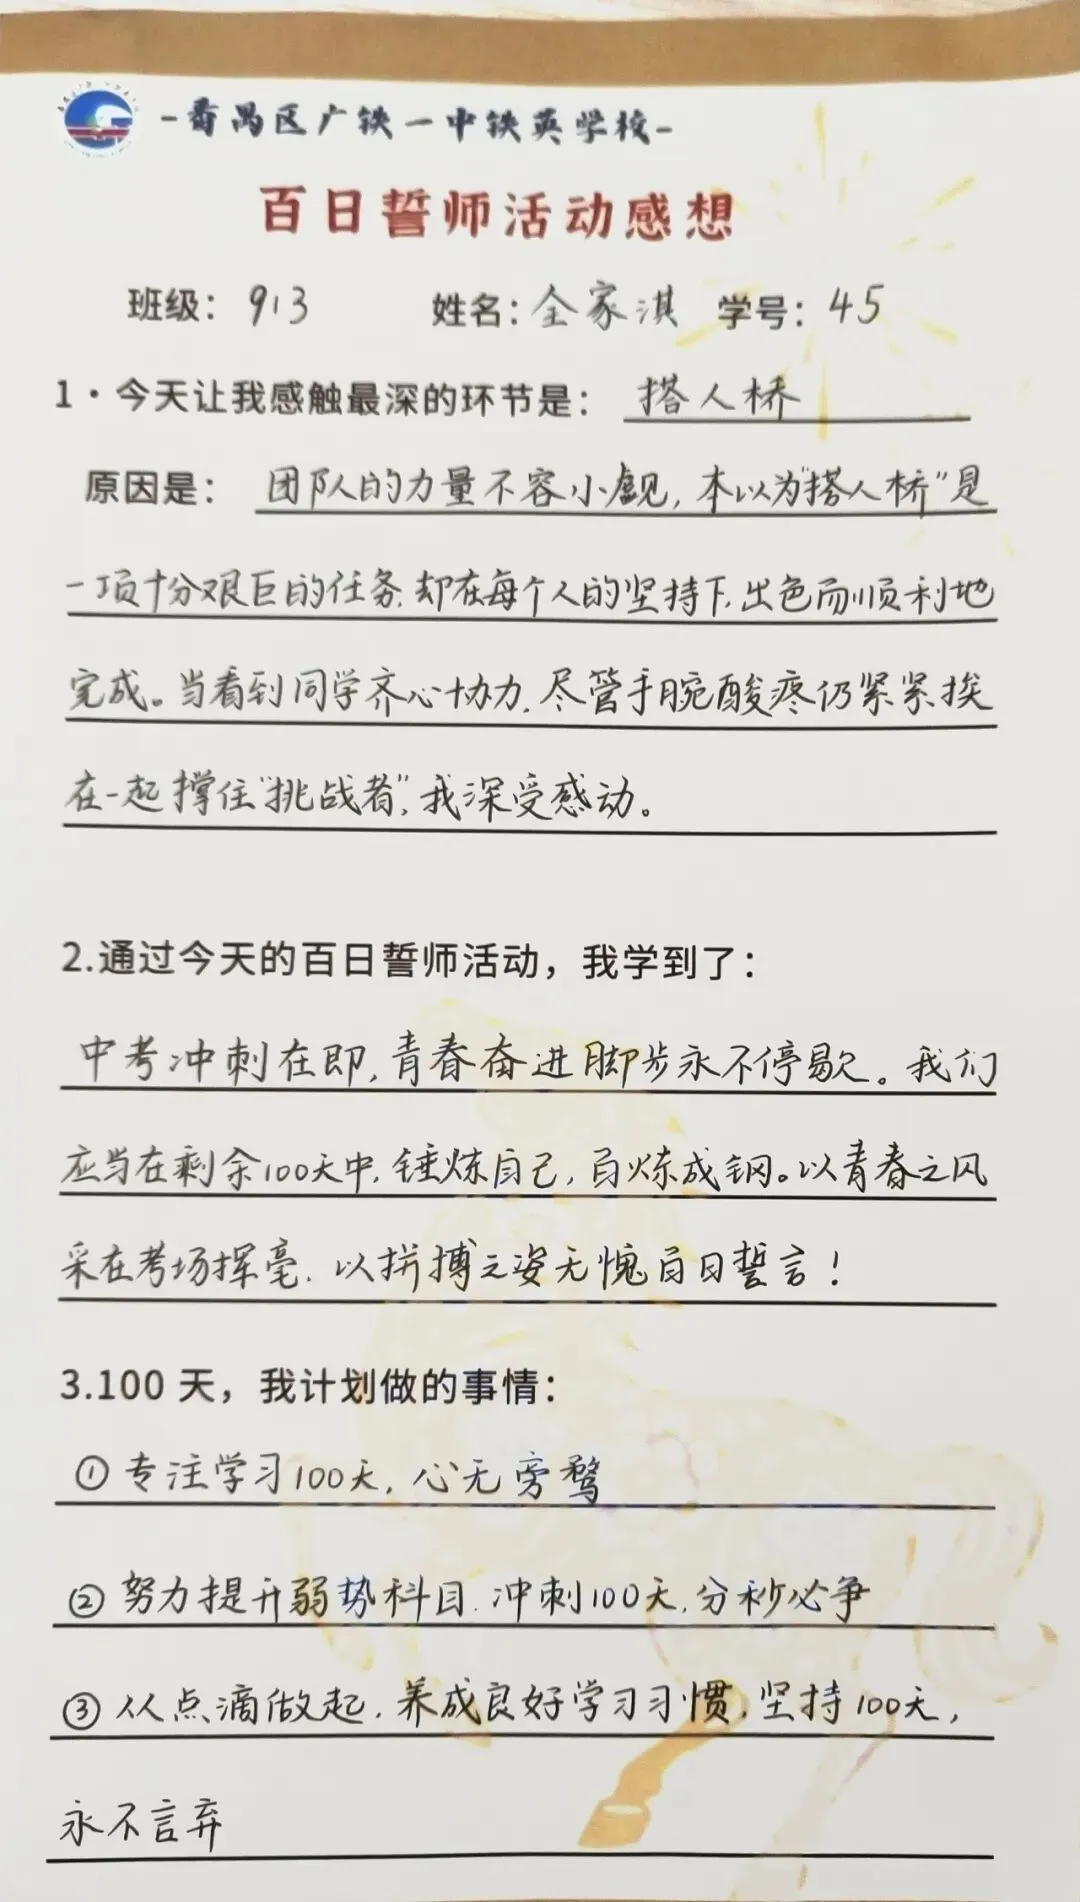 -番禺区广铁一中铁英学校-
百日誓师活动感想
班级：913 姓名：全家淇 学号：45
1·今天让我感触最深的环节是：搭人桥
原因是：团队的力量不容小觑，本以为“搭人桥”是
一项十分艰巨的任务，却在每个人的坚持下，出色而顺利地
完成。当看到同学齐心协力，尽管手腕酸疼仍紧紧挨
在一起撑住“挑战者”，我深受感动。
2.通过今天的百日誓师活动，我学到了：
中考冲刺在即，青春奋进脚步永不停歇。我们
应当在剩余100天中，锤炼自己，百炼成钢。以青春之风
采在考场挥毫，以拼搏之姿无愧百日誓言！
3.100 天，我计划做的事情：
①专注学习100天，心无旁骛
②努力提升弱势科目，冲刺100天，分秒必争
③从点滴做起，养成良好学习习惯，坚持100天，
永不言弃